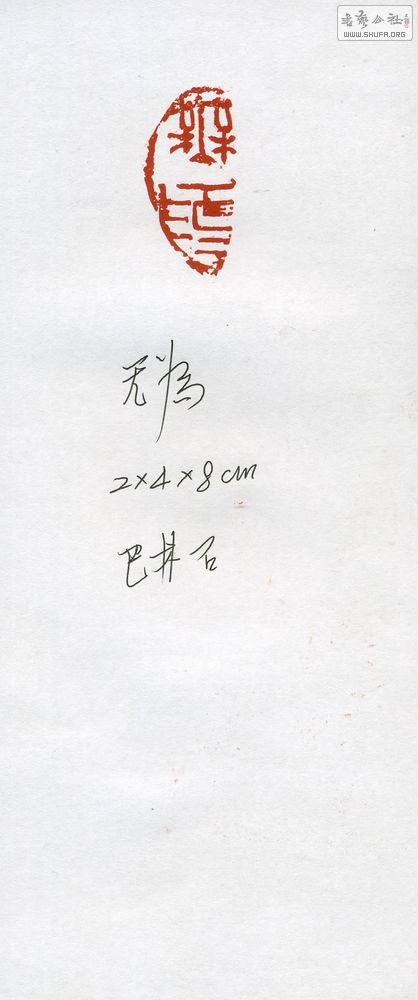 書藝公社
WWW.SHUFA.ORG
無為
无為
2×4×8cm
巴林石